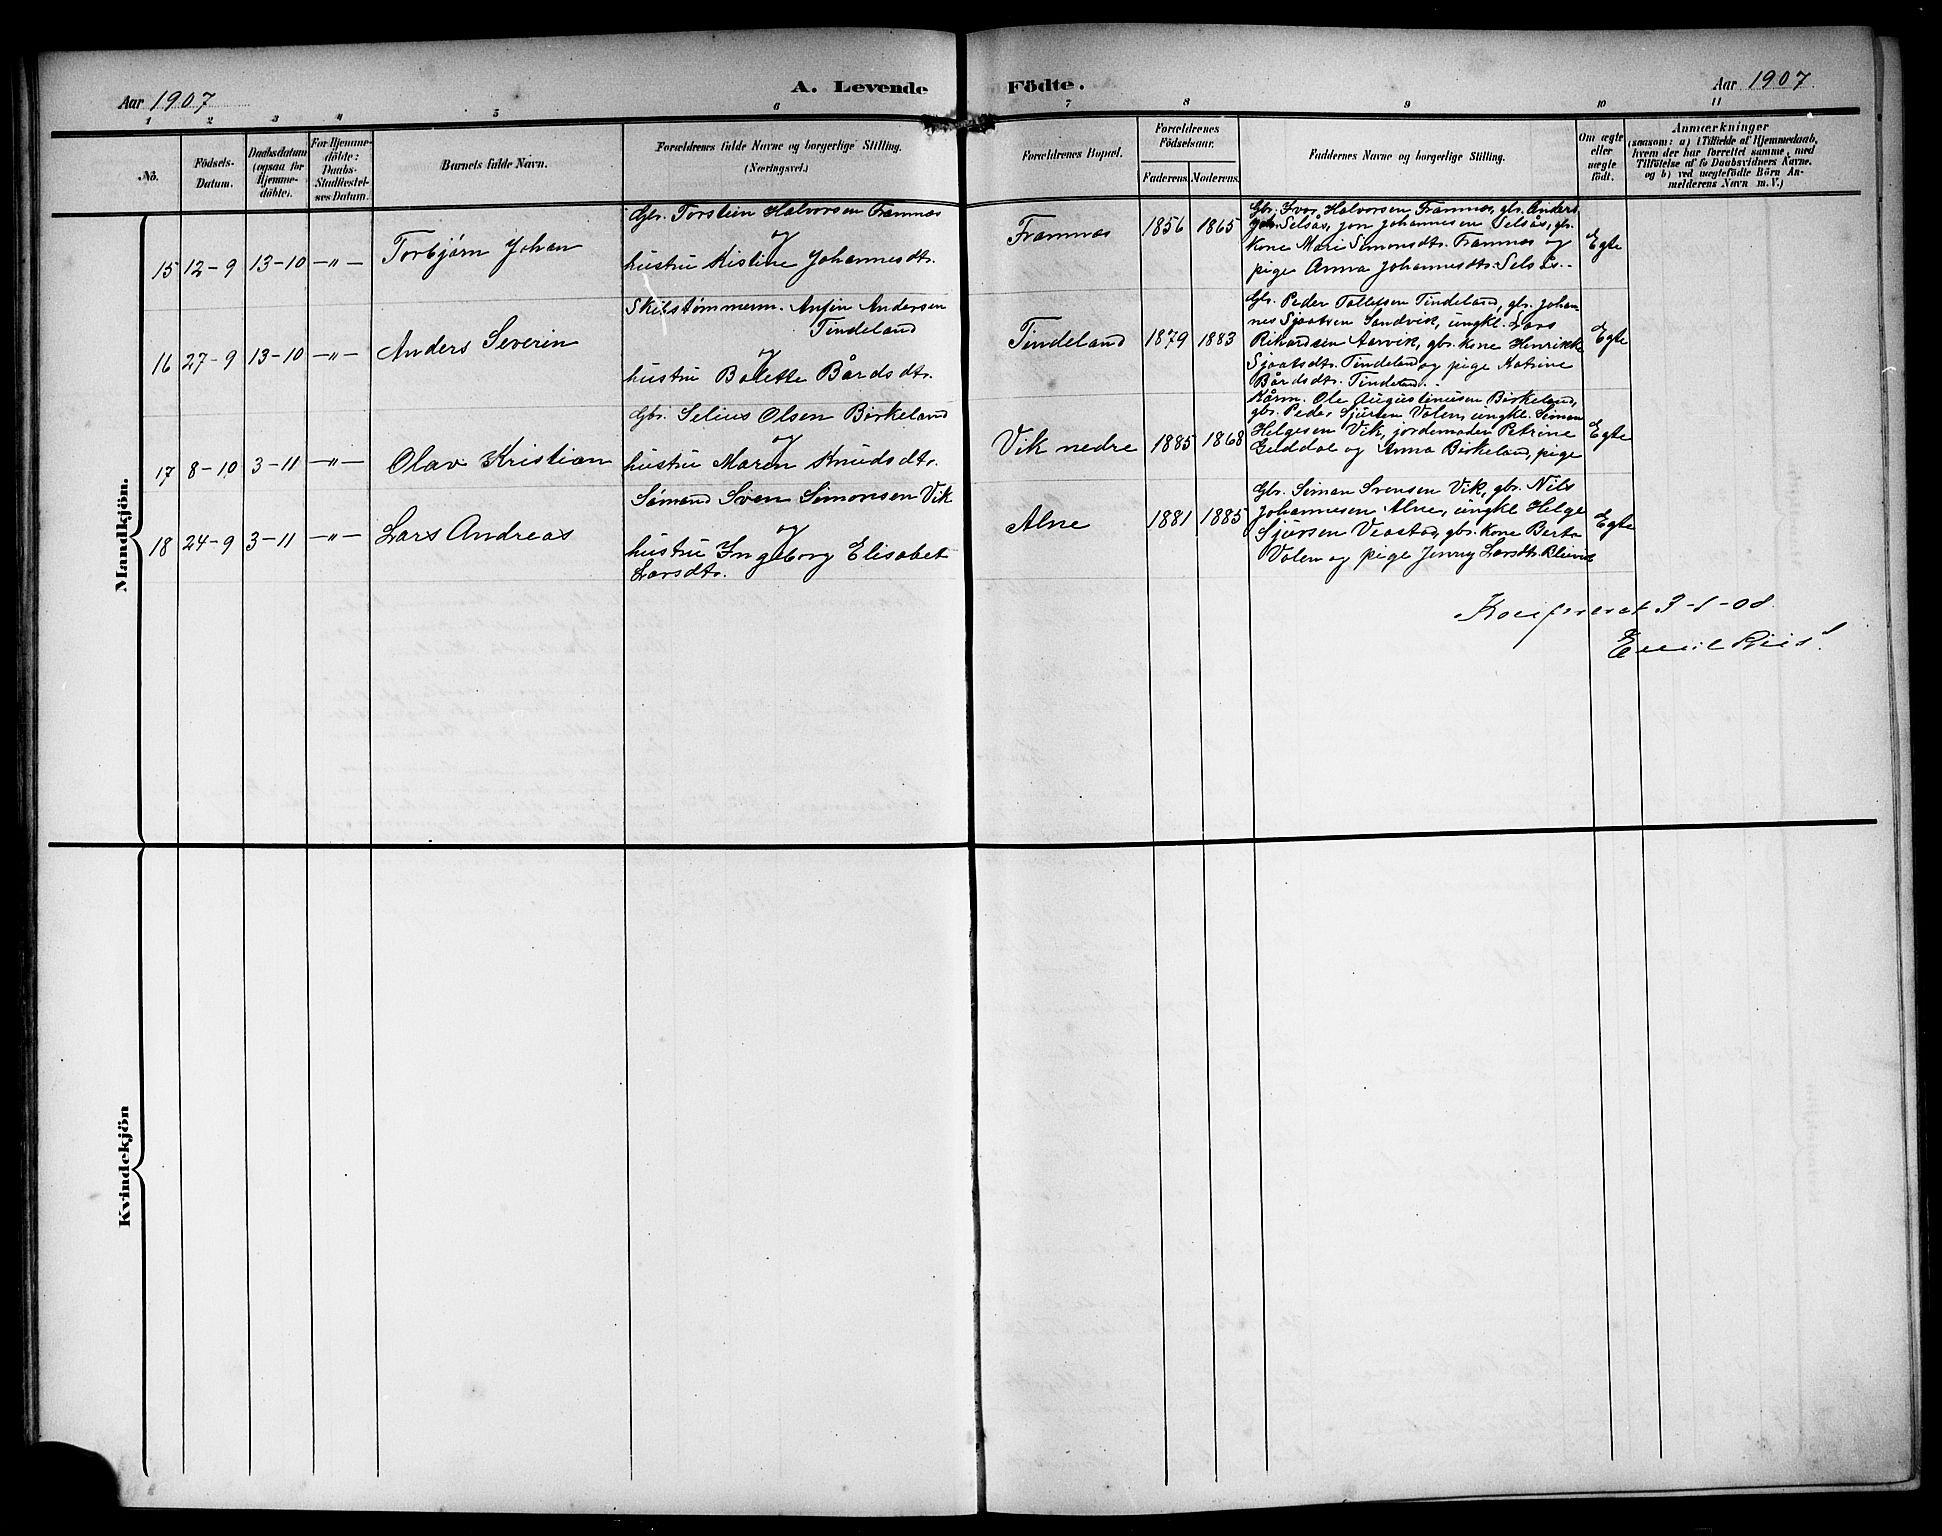 Aar 1907
A. Levende Födte.
Aar 1907.
1 2 3 4 5 6 7 8 9 10 11
No.
Födsels-
Datum.
Daabsdatum
(ogsaa for
Hjemme-
döbte).
For Hjemme-
döbte:
Daabs-
Stadfæstel-
ses Datum.
Barnets fulde Navn.
Forældrenes fulde Navne og borgerlige Stilling.
(Næringsvei.)
Forældrenes Bopæl.
Forældrenes
Födselsaar.
Faderens. Moderens.
Faddernes Navne og borgerlige Stilling.
Om ægte
eller
uægte
födt.
Anmærkninger
(saasom: a) i Tilfælde af Hjemmedaab,
hvem der har forrettet samme, med
Tilföielse af to Daabsvidners Navne,
og b) ved uegtefödte Börn An-
melderens Navn m. V.)
Mandkjön.
15 12-9 13-10 -"- Torbjørn Johan
Gbr. Torstein Halvorsen Framnæs
og
hustru Kistine Johannesdtr.
Framnæs 1856 1865
Gbr. Ivar Halvorsen Framnæs, gbr. Anders
Selsås, Jon Johannesen Selsås, gbr.
kone Mari Simonsdtr. Framnæs og
pige Anna Johannesdtr. Selsås.
Egte
16 27-9 13-10 -"- Anders Severin
Skibstømmerm. Anfin Andersen
Tindeland
og
hustru Bolette Bårdsdtr.
Tindeland 1879 1883
Gbr. Peder Tollefsen Tindeland, gbr. Johan-
nes Sjoatsen Sandvik, ungkl. Lars
Rikardsen Aarvik, gbr. kone Henrikke
Sjoatsdtr. Tindeland og pige Katrine
Bårdsdtr. Tindeland.
Egte
17 8-10 3-11 -"- Olav Kristian
Gbr. Selius Olsen Birkeland
og
hustru Maren Knudsdtr.
Vik nedre 1885 1868
Kårm. Ole Augustinusen Birkeland,
gbr. Peder Sjursen Valen, ungkl. Simon
Helgesen Vik, jordemoder Petrine
og Anna Birkeland, pige
Egte
18 24-9 3-11 -"- Lars Andreas
Sømand Sven Simonsen Vik
og
hustru Ingeborg Elisabet
Larsdtr.
Alne 1881 1885
Gbr. Simon Svensen Vik, gbr. Nils
Johannesen Alne, ungkl. Helge
Sjursen Veastad, gbr. kone Berta
Valen og pige Jenny Larsdtr.
Egte
3-1-08.
Emil Riis
Kvindekjön